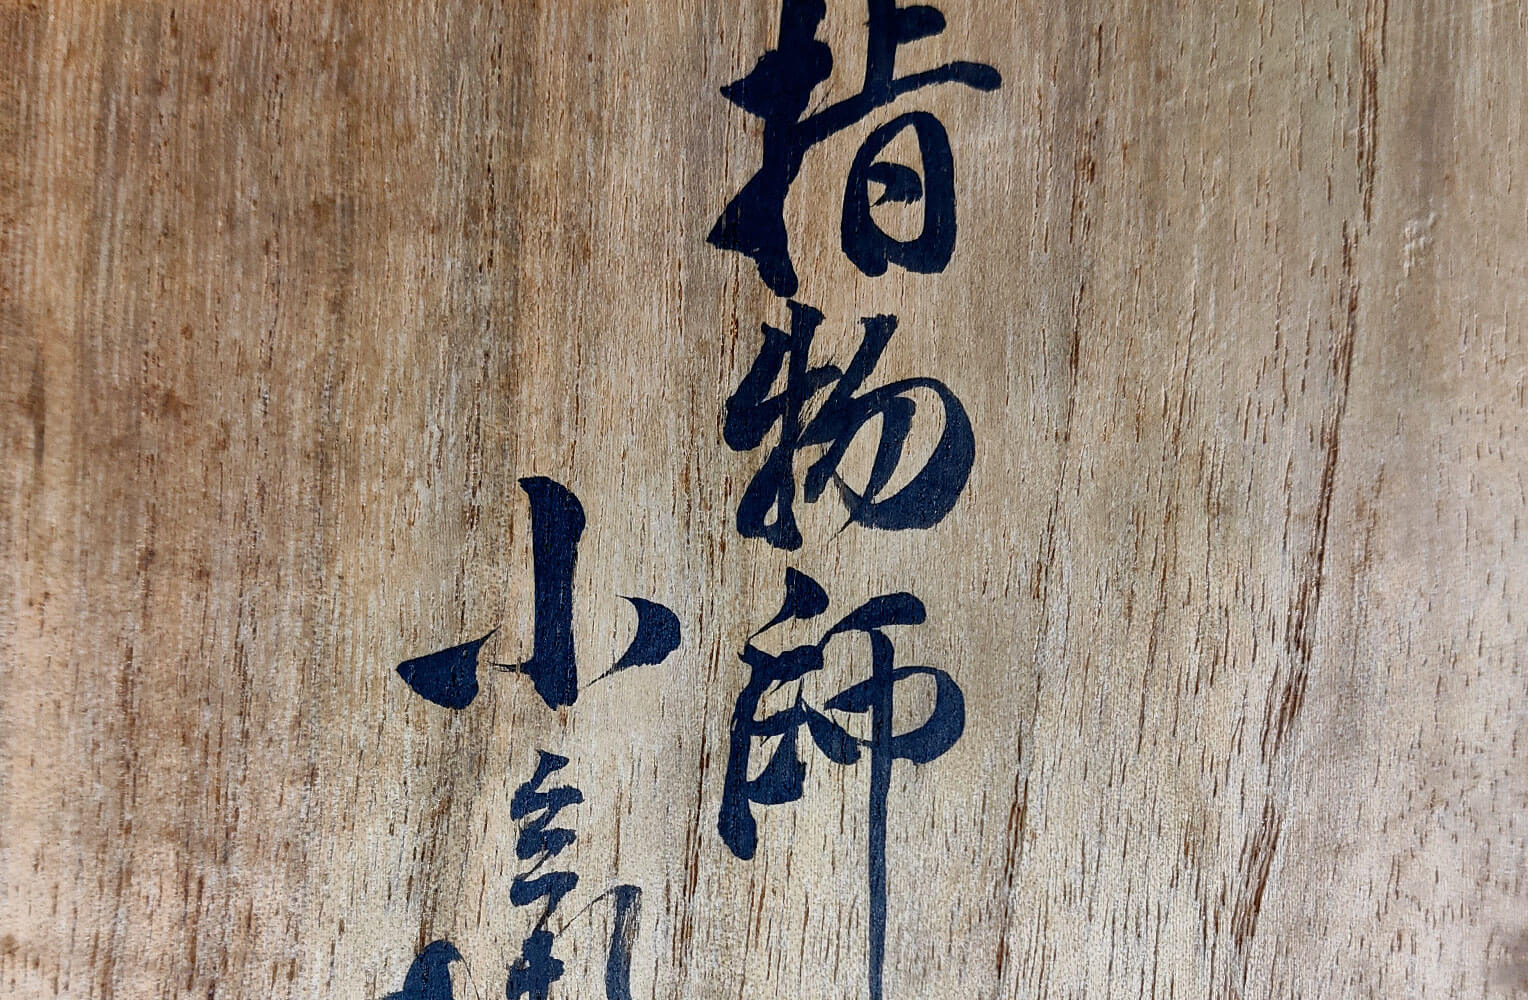 指物師
小